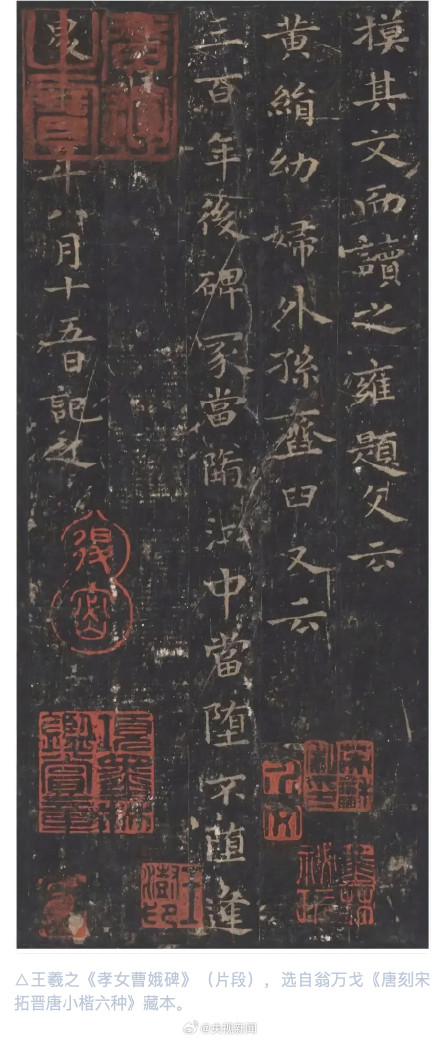 摸其文而讀之雍題文云
黃絹幼婦外孫齏臼又云
三百年後碑冢當隋江中當堕不堕逢
年八月十五日記之
項墨林鑑賞章
△王羲之《孝女曹娥碑》（片段），选自翁万戈《唐刻宋
拓晋唐小楷六种》藏本。
@央视新闻